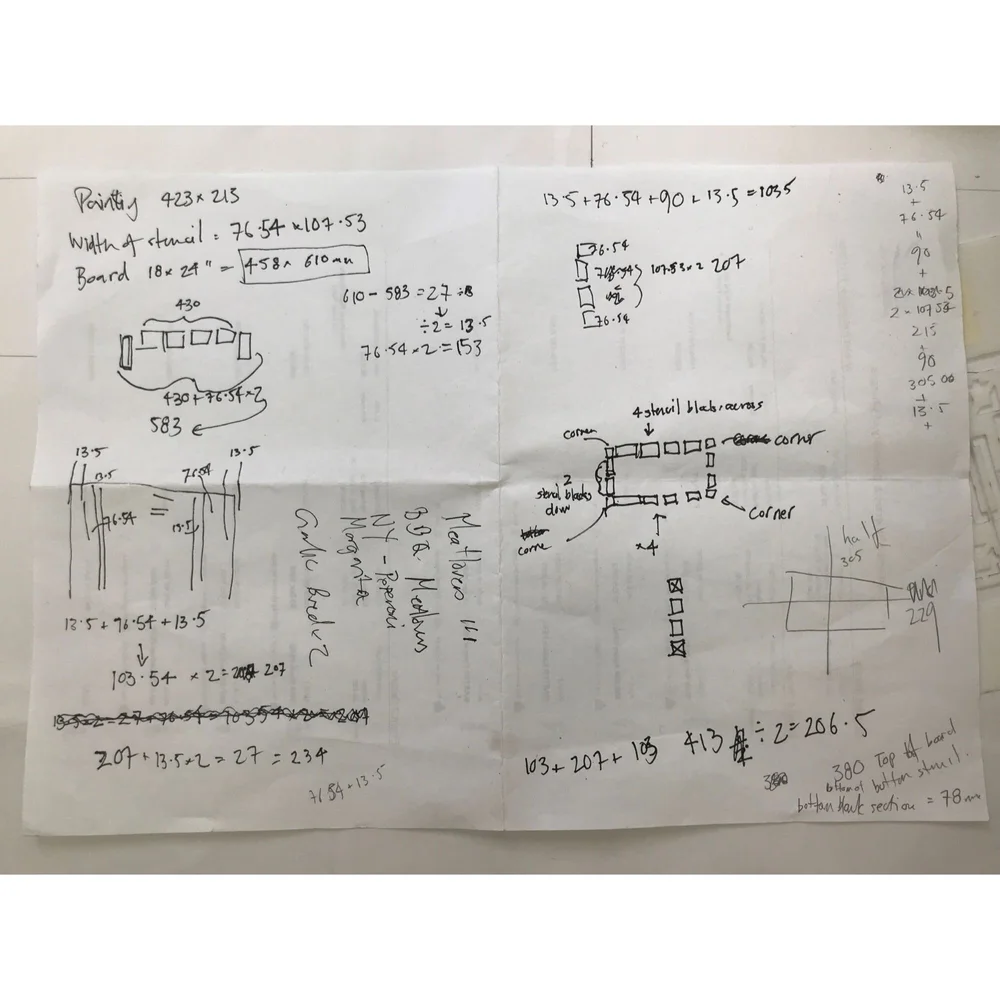 Painting 423 x 213
Width of stencil = 76.54 x 107.53
Board 18 x 24" = 458 x 610mm
430
430 + 76.54 x 2
583
610 - 583 = 27
÷2 = 13.5
76.54 x 2 = 153
13.5
13.5
76.54
13.5
76.54
13.5
13.5 + 76.54 + 13.5
103.54 x 2 = 207
207 + 13.5 x 2 = 27 = 234
76.54 + 13.5
Meatlovers
BBQ Meatlovers
NY - Peperoni
Margarita
Garlic Bread x 2
13.5 + 76.54 + 90 + 13.5 = 1035
76.54
107.53 x 2 207
76.54
4 stencil blocks across
corner
corner
2
stencil blocks
down
corne
x4
corner
half
305
229
103 + 207 + 103 413 ÷ 2 = 206.5
380 Top of board
bottom of button stencil.
bottom blank section = 78mm
13.5
+
76.54
"
90
+
2 x 107.54
215
+
90
305.00
+
13.5
+